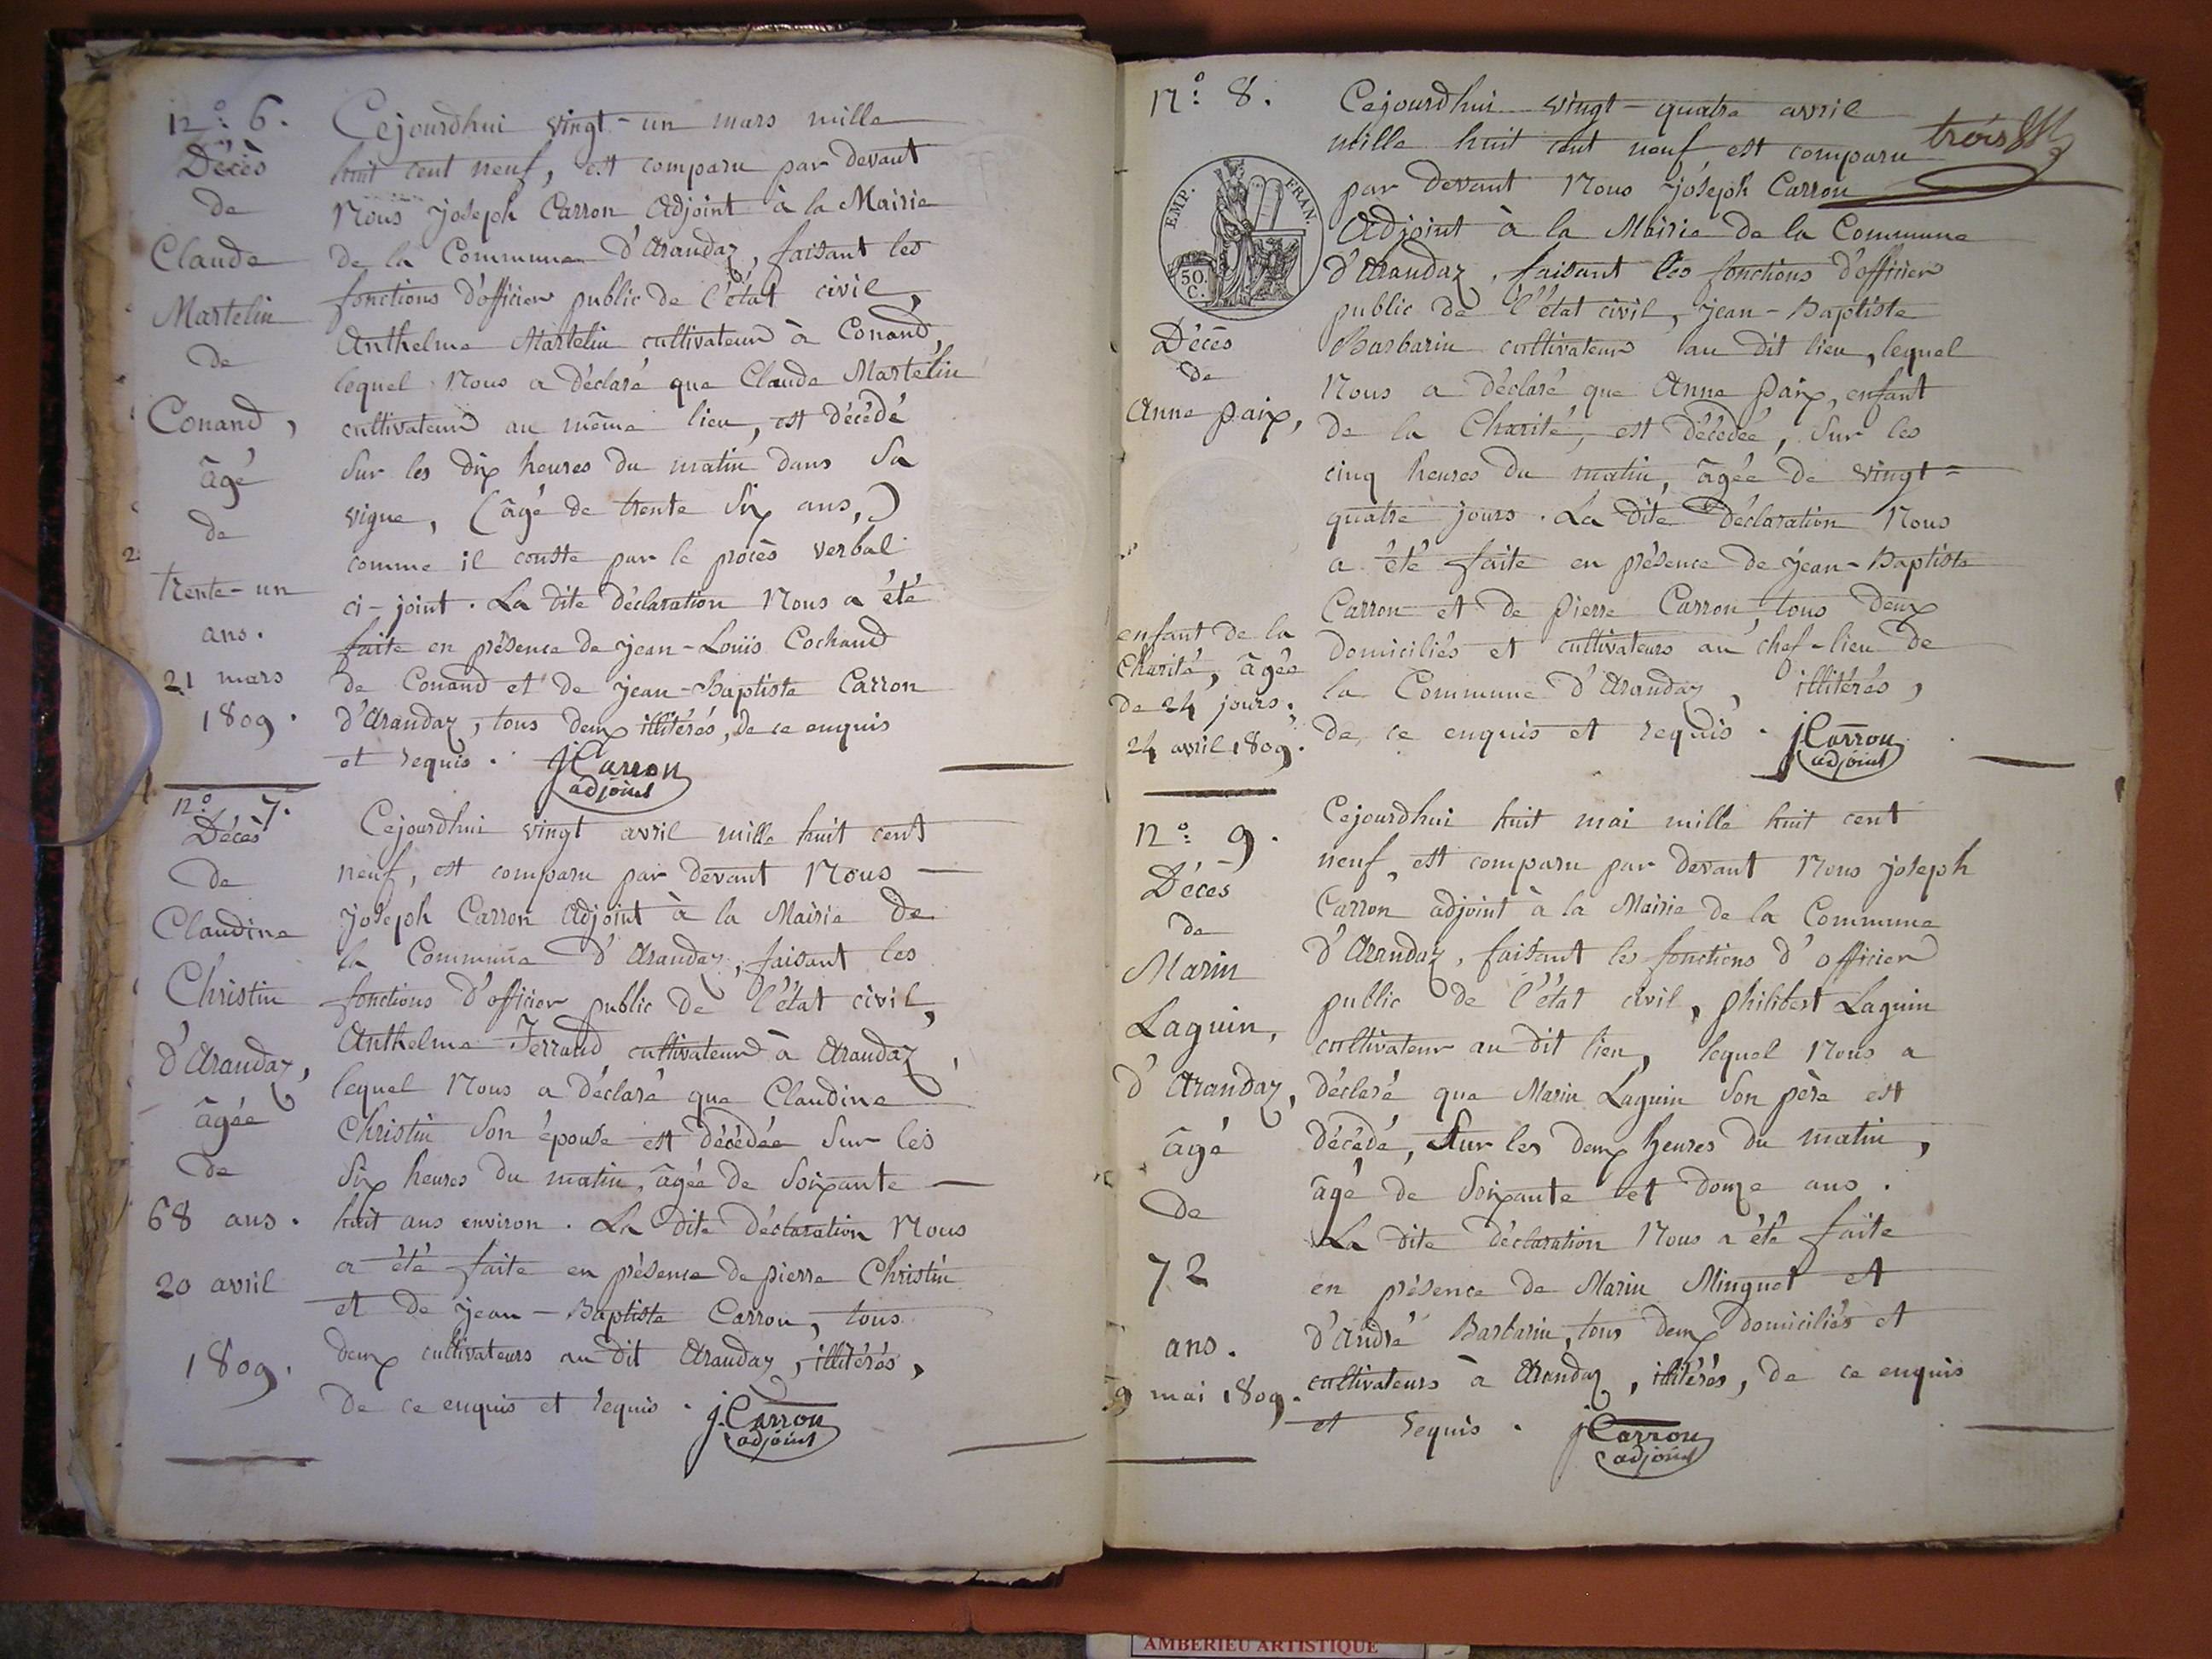 N.° 6.
Décès
de
Claude
Martelin
de
Conand,
âgé
de
trente-un
ans.
21 mars
1809.
Cejourdhui vingt-un mars mille
huit cent neuf, est comparu par devant
Nous joseph Carron Adjoint à la Mairie
de la Commune d'Arandaz, faisant les
fonctions d'officier public de l'état civil,
Anthelme Martelin cultivateur à Conand,
lequel Nous a déclaré que Claude Martelin
cultivateur au même lieu, est décédé
sur les dix heures du matin dans sa
vigne, (âgé de trente six ans,)
comme il conste par le procès verbal
ci-joint. La dite déclaration Nous a été
faite en présence de jean-Louis Cochand
de Conand et de jean-Baptiste Carron
d'Arandaz, tous deux illitérés, de ce enquis
et requis. jCarron
adjoint
N.° 7.
Décès
de
Claudine
Christin
d'Arandaz,
âgée
de
68 ans.
20 avril
1809.
Cejourdhui vingt avril mille huit cent
neuf, est comparu par devant Nous
joseph Carron Adjoint à la Mairie de
la Commune d'Arandaz, faisant les
fonctions d'officier public de l'état civil,
Anthelme Ferrand cultivateur à Arandaz,
lequel Nous a déclaré que Claudine
Christin son épouse est décédée sur les
six heures du matin, âgée de soixante
huit ans environ. La dite déclaration Nous
a été faite en présence de pierre Christin
et de jean-Baptiste Carron, tous
deux cultivateurs au dit Arandaz, illitérés,
de ce enquis et requis. j.Carron
adjoint
N.° 8.
EMP. FRAN.
50 C.
Décès
de
Anne paix,
enfant de la
Charité, âgée
de 24 jours.
24 avril 1809.
Cejourdhui vingt-quatre avril
mille huit cent neuf, est comparu trois
par devant Nous joseph Carron
Adjoint à la Mairie de la Commune
d'Arandaz, faisant les fonctions d'officier
public de l'état civil, jean-Baptiste
Barbarin cultivateur au dit lieu, lequel
Nous a déclaré que Anne paix, enfant
de la Charité, est décédée, sur les
cinq heures du matin, âgée de vingt=
quatre jours. La dite déclaration Nous
a été faite en présence de jean-Baptiste
Carron et de pierre Carron, tous deux
domiciliés et cultivateurs au chef-lieu de
la Commune d'Arandaz, illitérés,
de ce enquis et requis. jCarron
adjoint
N.° 9.
Décès
de
Marin
Laguin,
d'Arandaz,
âgé
de
72
ans.
9 mai 1809.
Cejourdhui huit mai mille huit cent
neuf, est comparu par devant Nous joseph
Carron adjoint à la Mairie de la Commune
d'Arandaz, faisant les fonctions d'officier
public de l'état civil, philibert Laguin
cultivateur au dit lieu, lequel Nous a
déclaré que Marin Laguin son père est
décédé, sur les deux heures du matin,
âgé de soixante et douze ans.
La dite déclaration Nous a été faite
en présence de Marin Minguet et
d'André Barbarin, tous deux domiciliés et
cultivateurs à Arandaz, illitérés, de ce enquis
et requis. jCarron
adjoint
AMBERIEU ARTISTIQUE